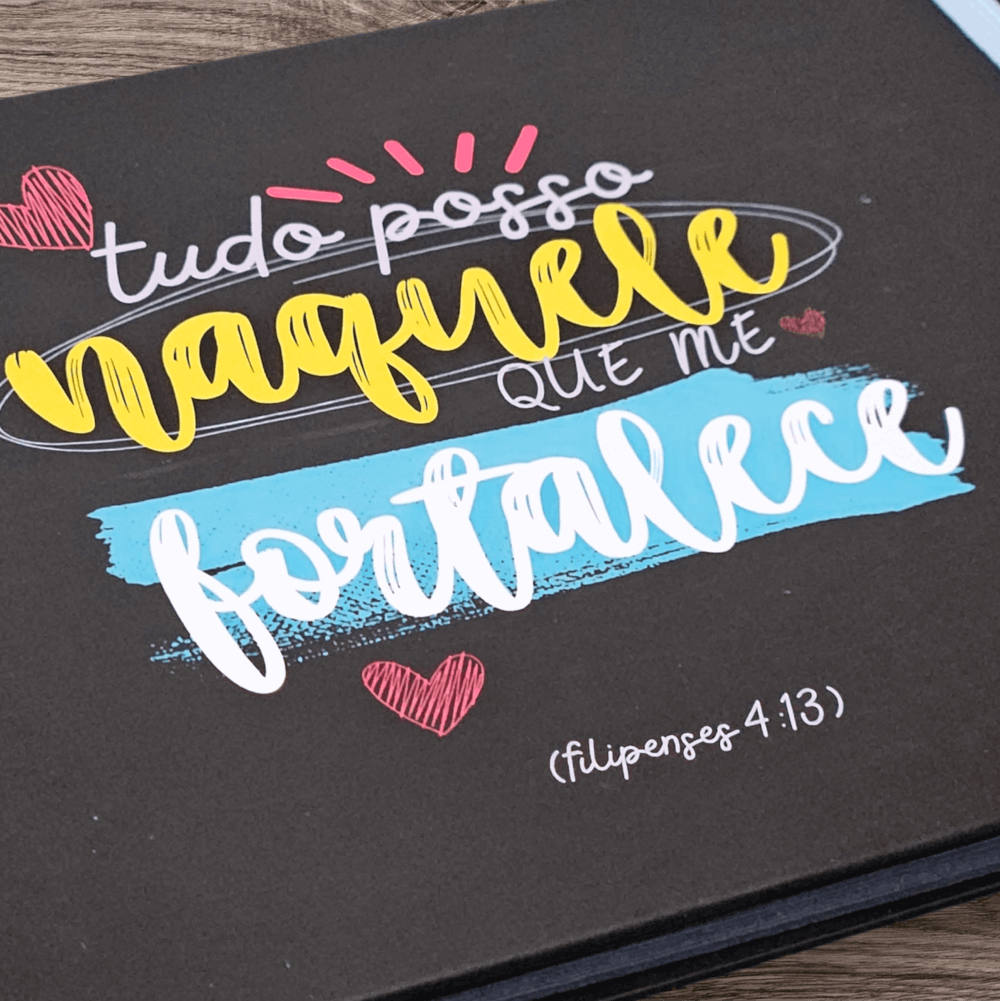 tudo posso
naquele
QUE ME
fortalece
(filipenses 4:13)